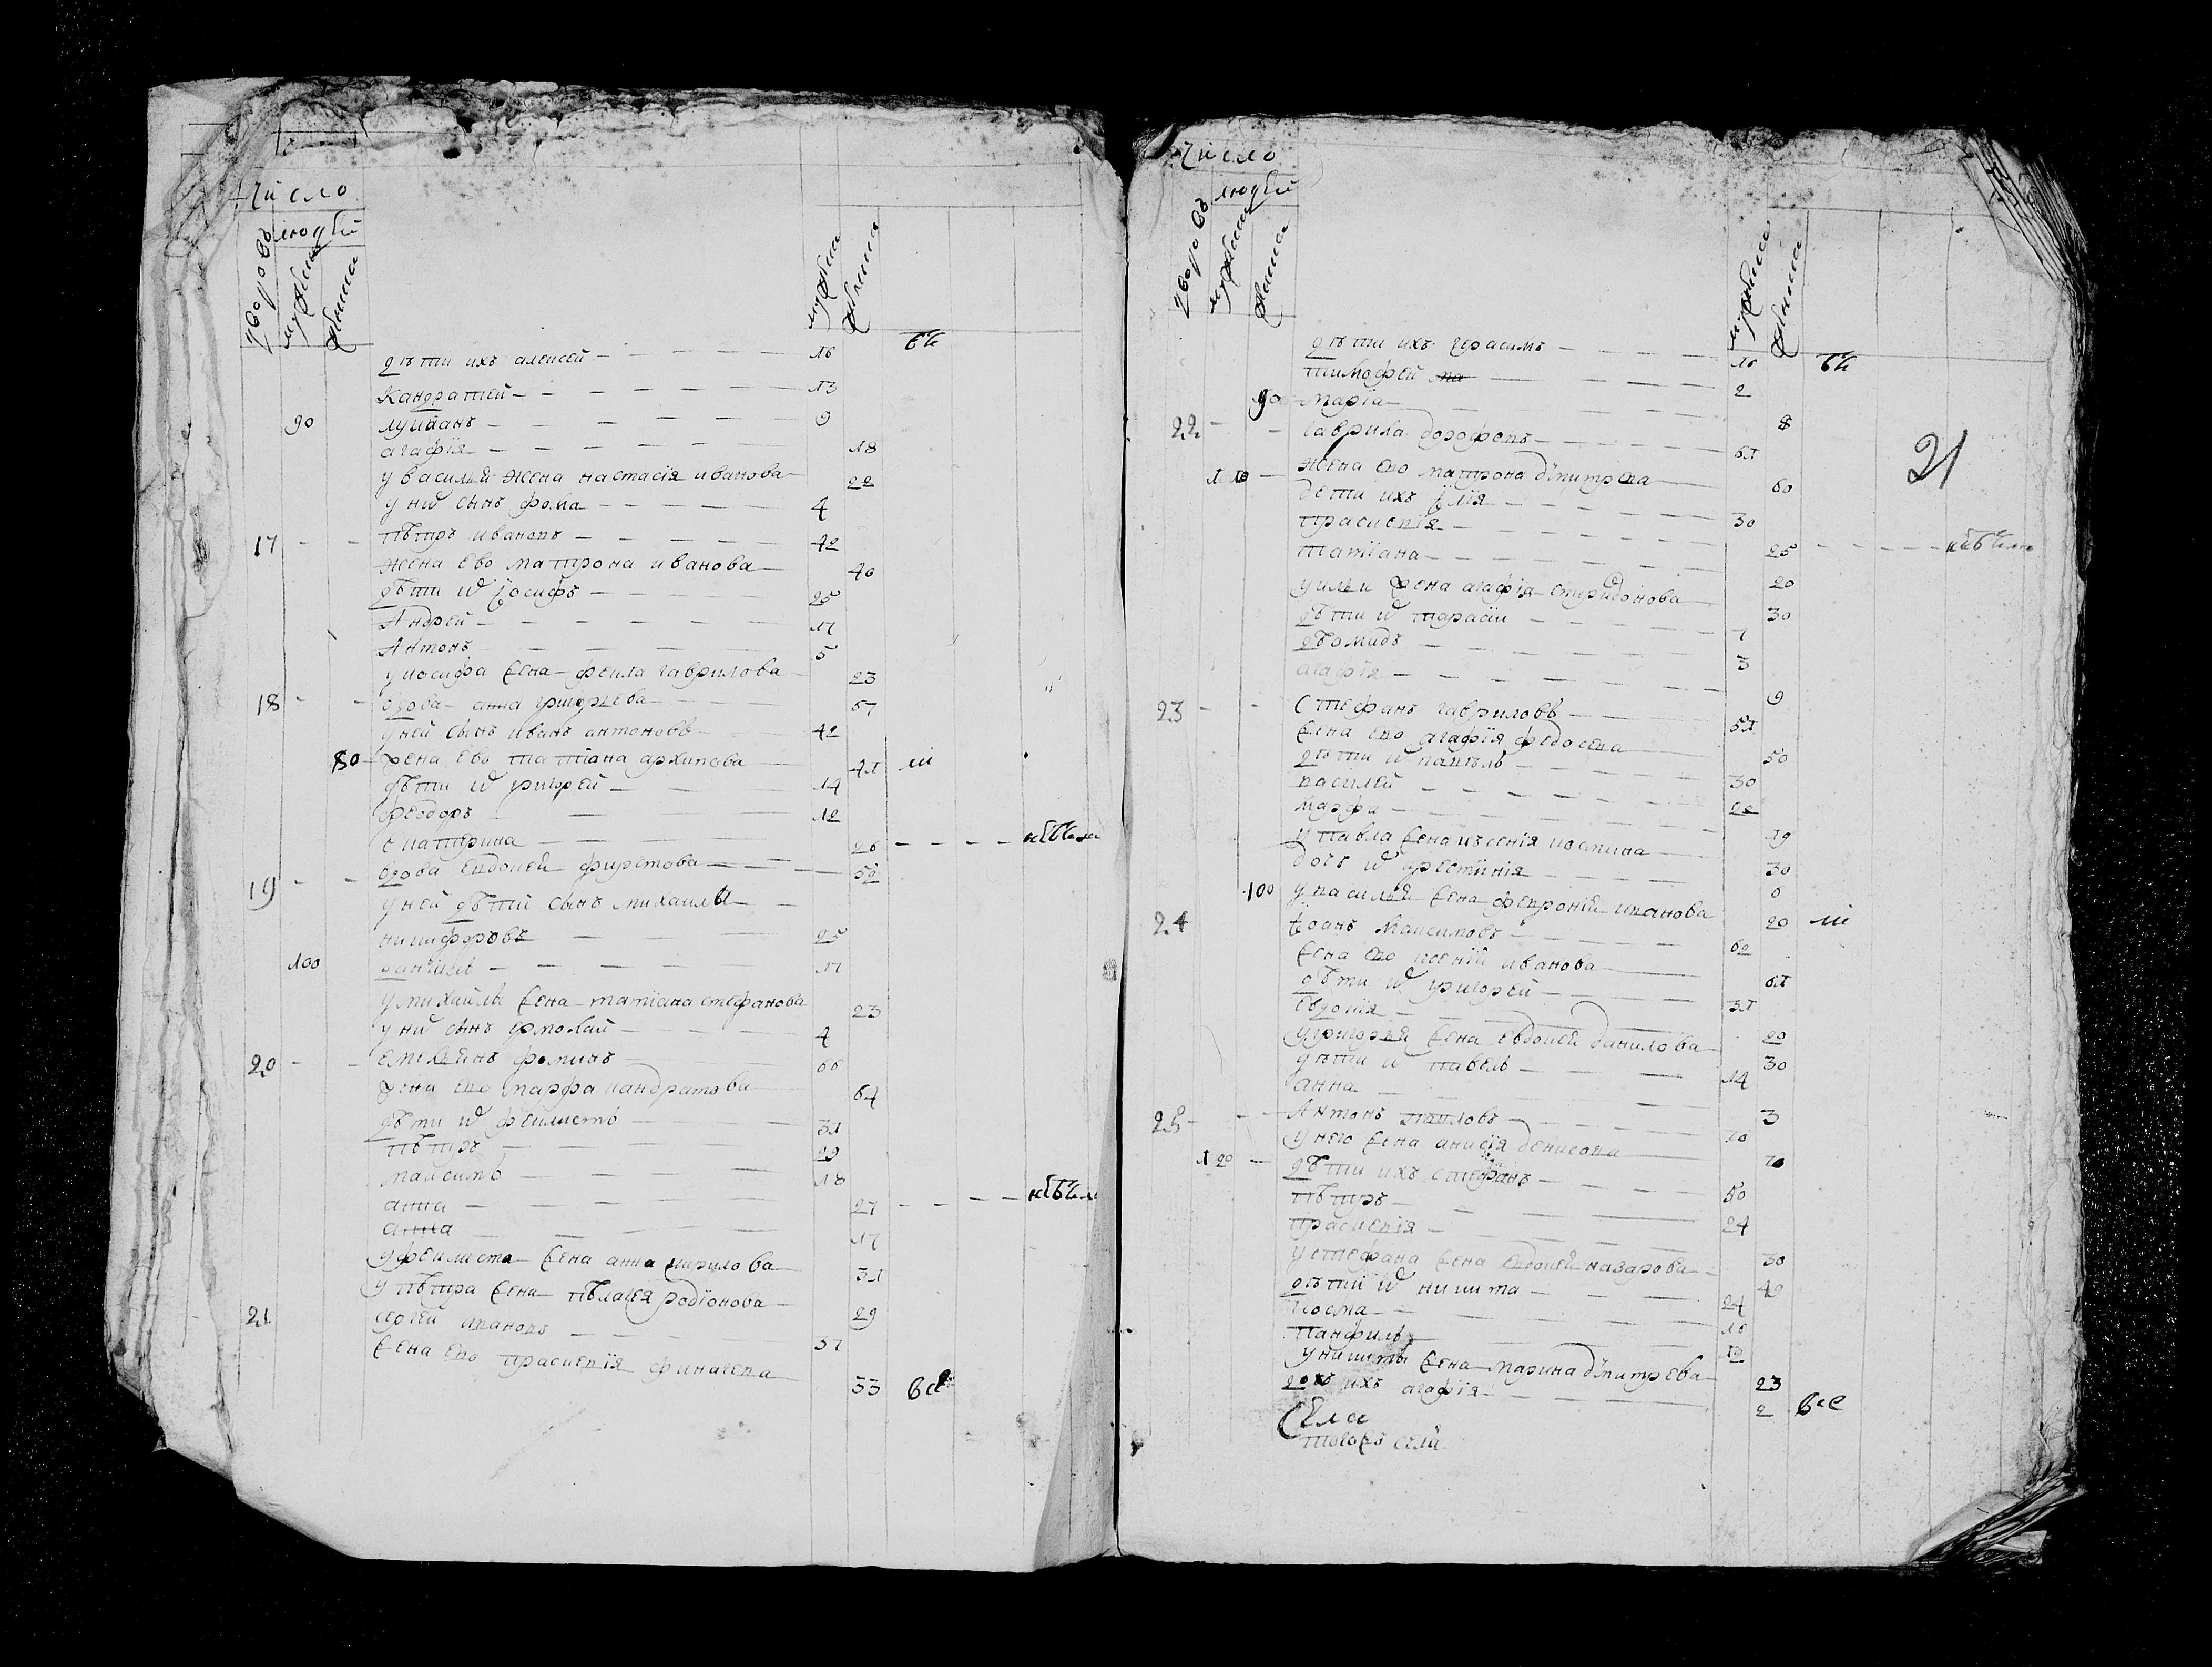 Число
людей
дворовъ
мужеска
женска
мужеска
женска
дѣти ихъ алексей 16
Кандратей 13
90 лукианъ 9
агафїя 18
у василья жена настасїя иванова 22
у ниⷯ сынъ фома 4
17 Пѣтръ ивановъ 42
жена ево матрона иванова 40
дѣти иⷯ Іосифъ 25
Андрей 17
Антонъ 5
у иосифа жена фекла гаврилова 23
18 вдова анна григорьева 67
у ней сынъ иванъ антоновъ 42
80 жена ево татїана архипова 41
дѣти иⷯ григорей 14
Феодоръ 12
Екатерина 26
19 вдова евдокея фирстова 52
у ней дѣтей сынъ михаилъ
никифоровъ 25
100 17
у михаила жена татїана стефанова 23
у ниⷯ сынъ ермолай 4
20 емельянъ фоминъ 66
жена ево марфа кандратова 64
дѣти иⷯ феклистъ 31
пѣтръ 29
максимъ 18
анна 27
анна 17
у феклиста жена анна кирилова 31
у пѣтра жена пѣлагея родїонова 29
21 сергей ивановъ 57
жена ево праскевїя финагева 53 все
Число
людей
дворовъ
мужеска
женска
мужеска
женска
21
дѣти ихъ герасимъ 16
тимофей 2
90 марїа 8
22 гаврила дорофевъ 61
110 жена ево матрона дмитрева 60
дети ихъ Илїя 30
праскевїя 25
татїана 20
у ильи жена агафїя спиридонова 30
дѣти иⷯ тарасїи 7
дѣомидъ 3
агафїя 9
23 Стефанъ гавриловъ 51
жена ево агафїя федосева 50
дѣти иⷯ павелъ 30
василей 22
марфа 19
у павла жена ксенїя космина 30
дочь иⷯ крестинїя 0
100 у василья жена феврония иванова 20
24 Іоанъ Максимовъ 62
жена ево ксения иванова 61
дѣти иⷯ григорей 31
Евдокїя 20
у григорья жена Евдокея данилова 30
дѣти иⷯ павелъ 14
анна 3
25 Антонъ павловъ 70
у него жена анисїя денисова 70
120 дѣти ихъ стефанъ 50
пѣтръ 24
праскевїя 30
у стефана жена евдокея назарова 49
дѣти иⷯ никита 24
косма 16
панфилъ 12
у никиты жена марина дмитрева 23
дочь ихъ агафїя 2 все
Села
тогожъ села